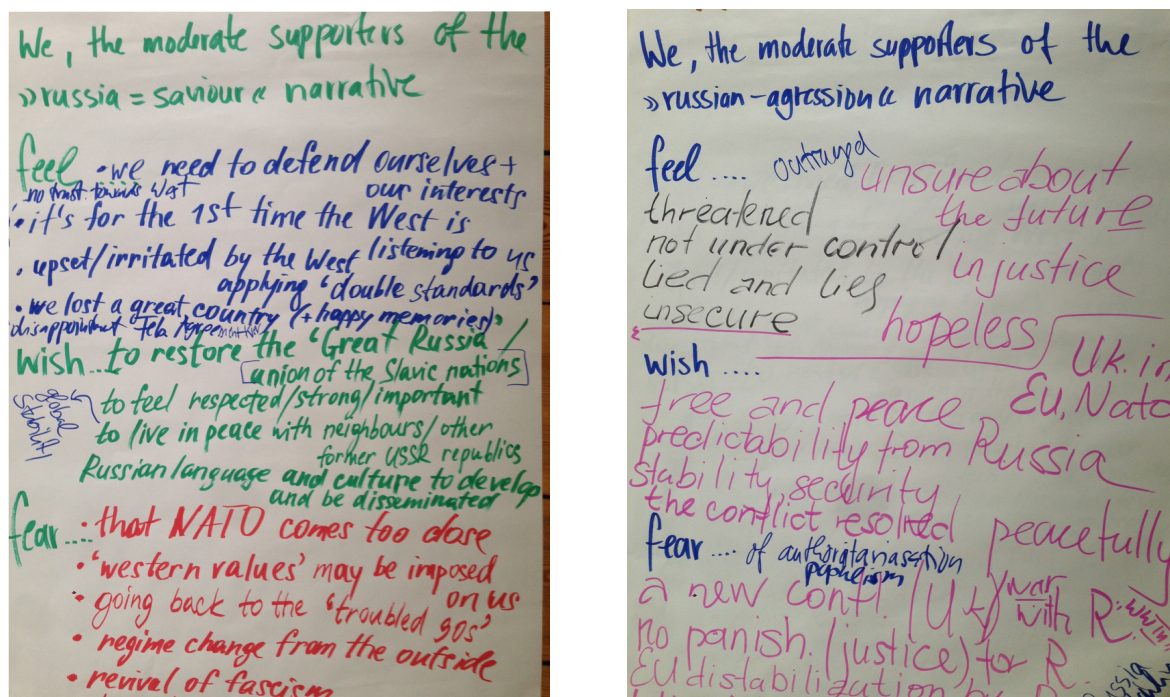 We, the moderate supporters of the
»russia = saviour« narrative
feel • we need to defend ourselves +
our interests
no trust towards West
• it's for the 1st time the West is
listening to us
• upset/irritated by the West
applying 'double standards'
• we lost a great country (+ happy memories)
wish ... to restore the 'Great Russia' /
union of the Slavic nations
global
stability
to feel respected/strong/important
to live in peace with neighbours/other
former USSR republics
Russian language and culture to develop
and be disseminated
fear .... • that NATO comes too close
• 'western values' may be imposed
on us
• going back to the 'troubled 90s'
• regime change from the outside
• revival of fascism
We, the moderate supporters of the
»russian-agression« narrative
feel .... outrayed
unsure about
the future
threatened
not under control
injustice
lied and lies
insecure
hopeless
wish ....
Uk. in
EU, Nato
free and peace
predictability from Russia
stability, security
the conflict resolved peacefully
fear .... of authoritarianisation
populism
a new confl. (Uk) war
with R.
no panish. (justice) for R.
EU distabilization